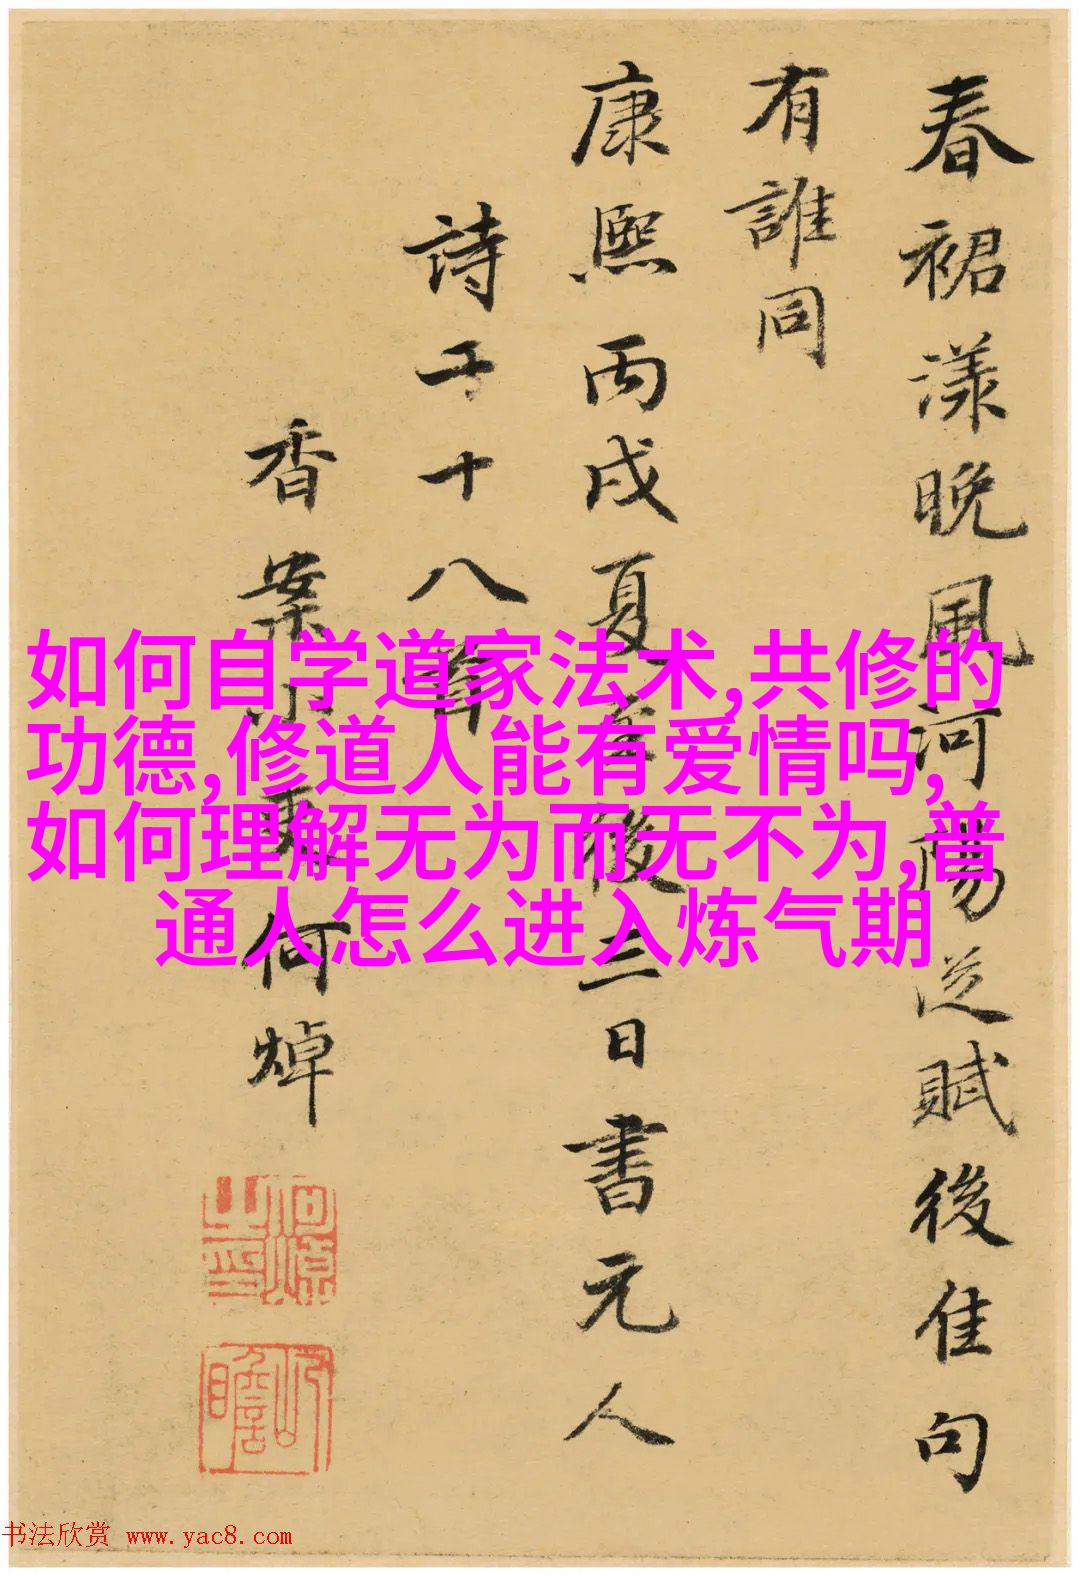 春裙漾晚風河陽從賦後佳句
有誰同
康熙丙戌夏至後三日書元人
詩于十八峰
香案小吏何焯
如何自学道家法术,共修的
功德,修道人能有爱情吗,
如何理解无为而无不为,普
通人怎么进入炼气期
书法欣赏 www.yac8.com